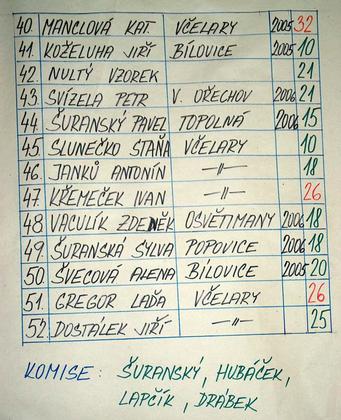 40. MANCLOVÁ KAT. VČELARY 2005 32
41. KOŽELUHA JIŘÍ BÍLOVICE 2005 10
42. NULTÝ VZOREK 21
43. SVÍZELA PETR V. OŘECHOV 2006 21
44. ŠURANSKÝ PAVEL TOPOLNÁ 2006 15
45. SLUNEČKO STAŇA VČELARY 10
46. JANKŮ ANTONÍN —〃— 18
47. KŘEMEČEK IVAN —〃— 26
48. VACULÍK ZDENĚK OSVĚTIMANY 2006 18
49. ŠURANSKÁ SYLVA POPOVICE 2006 18
50. ŠVECOVÁ ALENA BÍLOVICE 2005 20
51. GREGOR LAĎA VČELARY 26
52. DOSTÁLEK JIŘÍ —〃— 25
KOMISE: ŠURANSKÝ, HUBÁČEK,
LAPČÍK, DRÁBEK